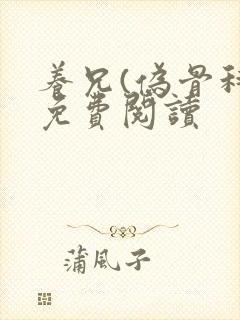 養兄(偽骨科
免費閱讀
蒲風子